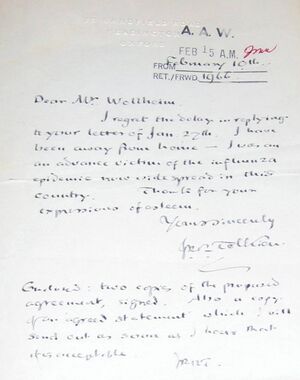 76 SANDFIELD ROAD
HEADINGTON
OXFORD
A. A. W.
FEB 15 A.M.
FROM
RET./FRWD
February 10th
1966
Dear Mr. Wollheim
I regret the delay in replying
to your letter of Jan. 27th. I have
been away from home — I was
an advance victim of the influenza
epidemic now widespread in this
country. Thank for your
expressions of esteem.
Yours sincerely
JRR Tolkien
Enclosed: two copies of the proposed
agreement, signed. Also a copy
of an agreed statement which I will
send out as soon as I hear that
it is acceptable.
JRRT.